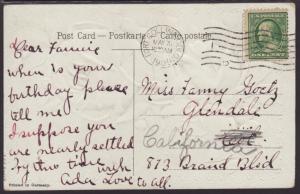 Post Card - Postkarte - Carte postale
Dear Fannie
when is your
birthday please
tell me
I suppose you
are nearly settled
by this time with
love to all.
Ada
Miss Fanny Goetz
Glendale
California
813 Braind Blvd
Printed in Germany.